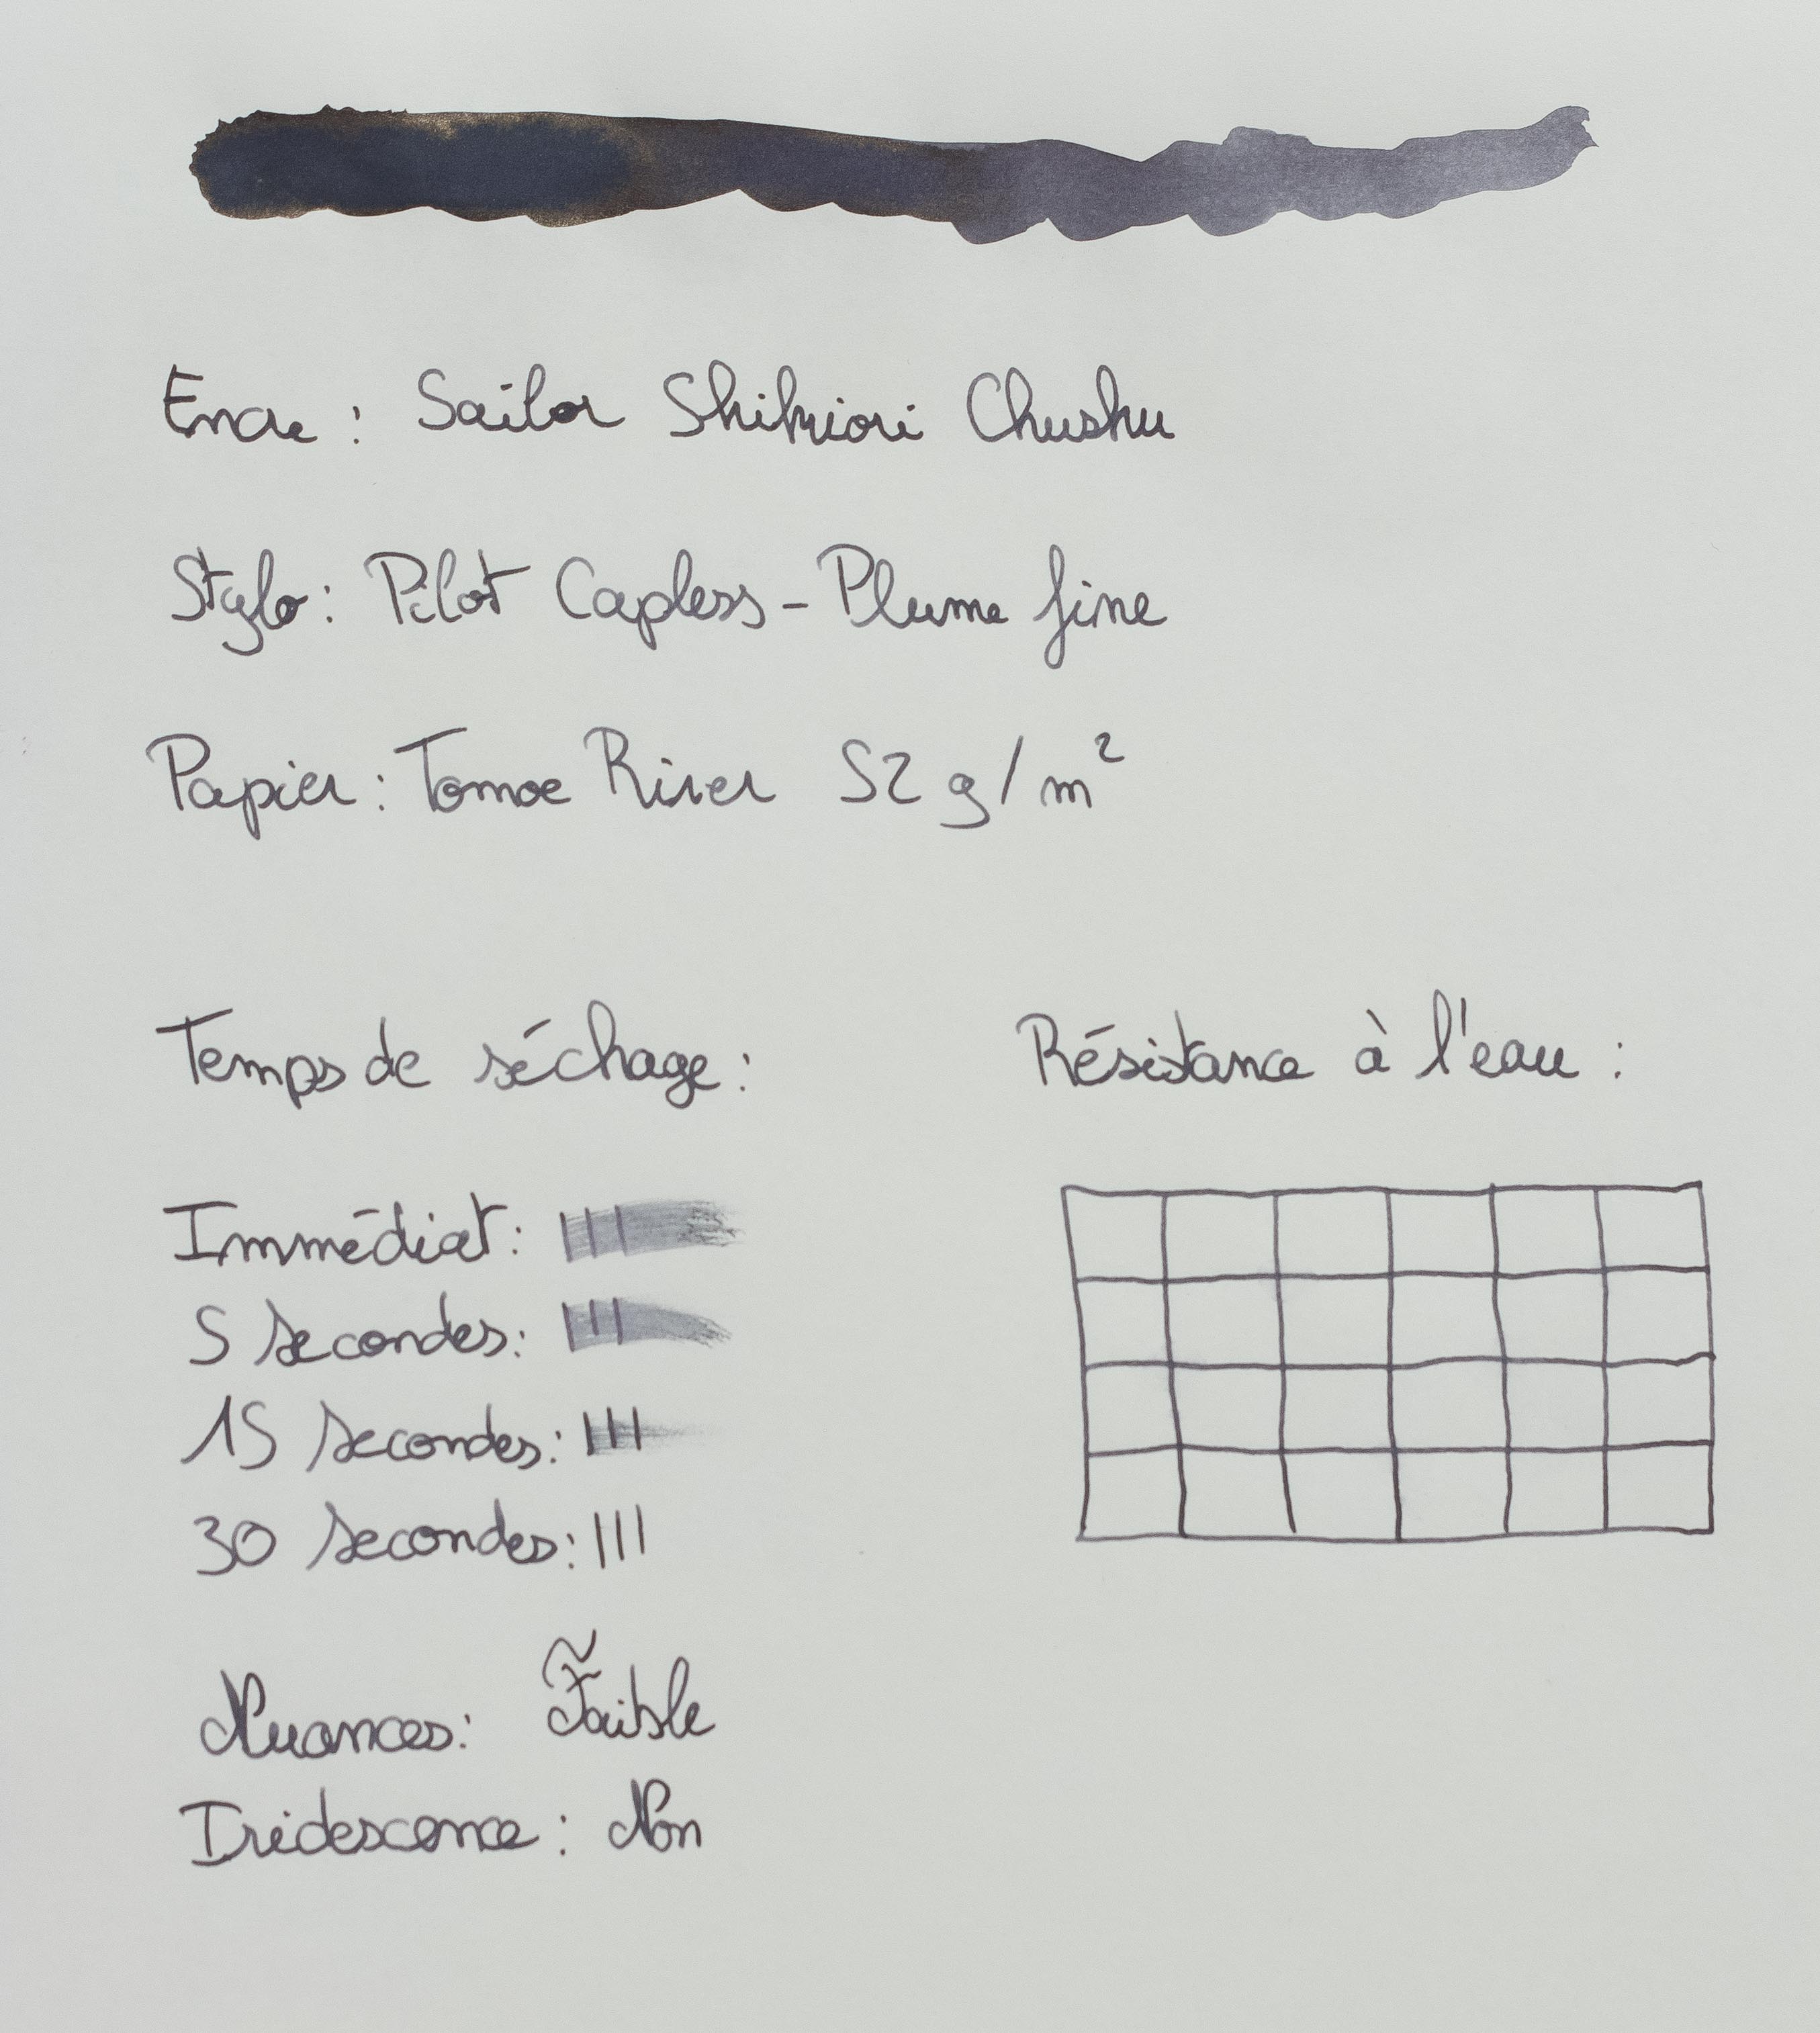 Encre : Sailor Shikiori Chushu
Stylo : Pilot Capless - Plume fine
Papier : Tomoe River 52 g/m²
Temps de séchage :
Immédiat :
5 secondes :
15 secondes :
30 secondes :
Nuances : Faible
Iridescence : Non
Résistance à l'eau :